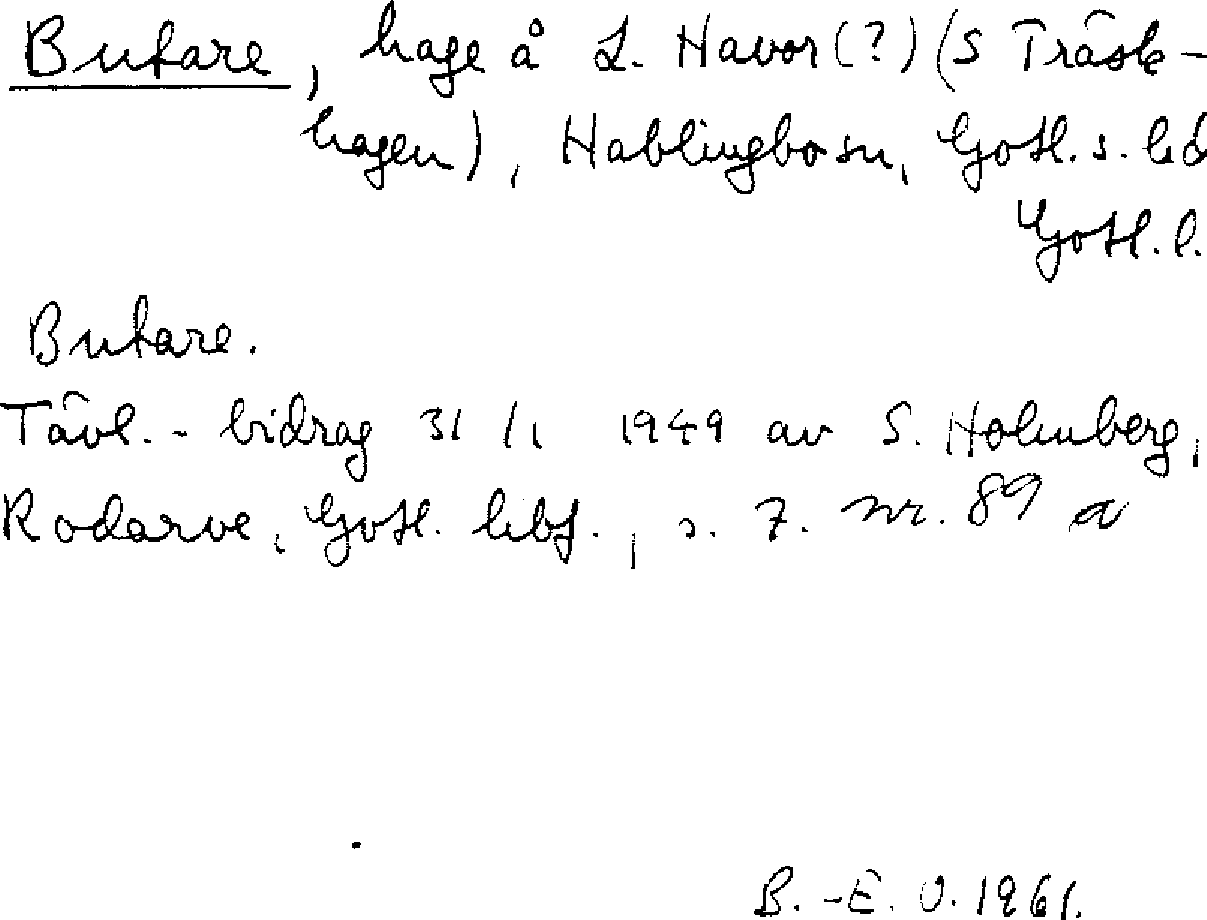 Butare, hage å L. Havor (?) (S Träsk-
hagen), Hablingbo sn, Gotl. s. hd
Gotl. l.
Butare.
Tävl.-bidrag 31/1 1949 av S. Holmberg,
Rodarve, Gotl. hbf., s. 7. nr. 89 a
B.-E. O. 1961.